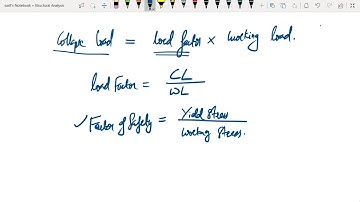 asif's Notebook - Structural Analysis
Collapse load = load factor × working load.
load Factor = CL / WL
✓ Factor of Safety = Yield Stress / working Stress.